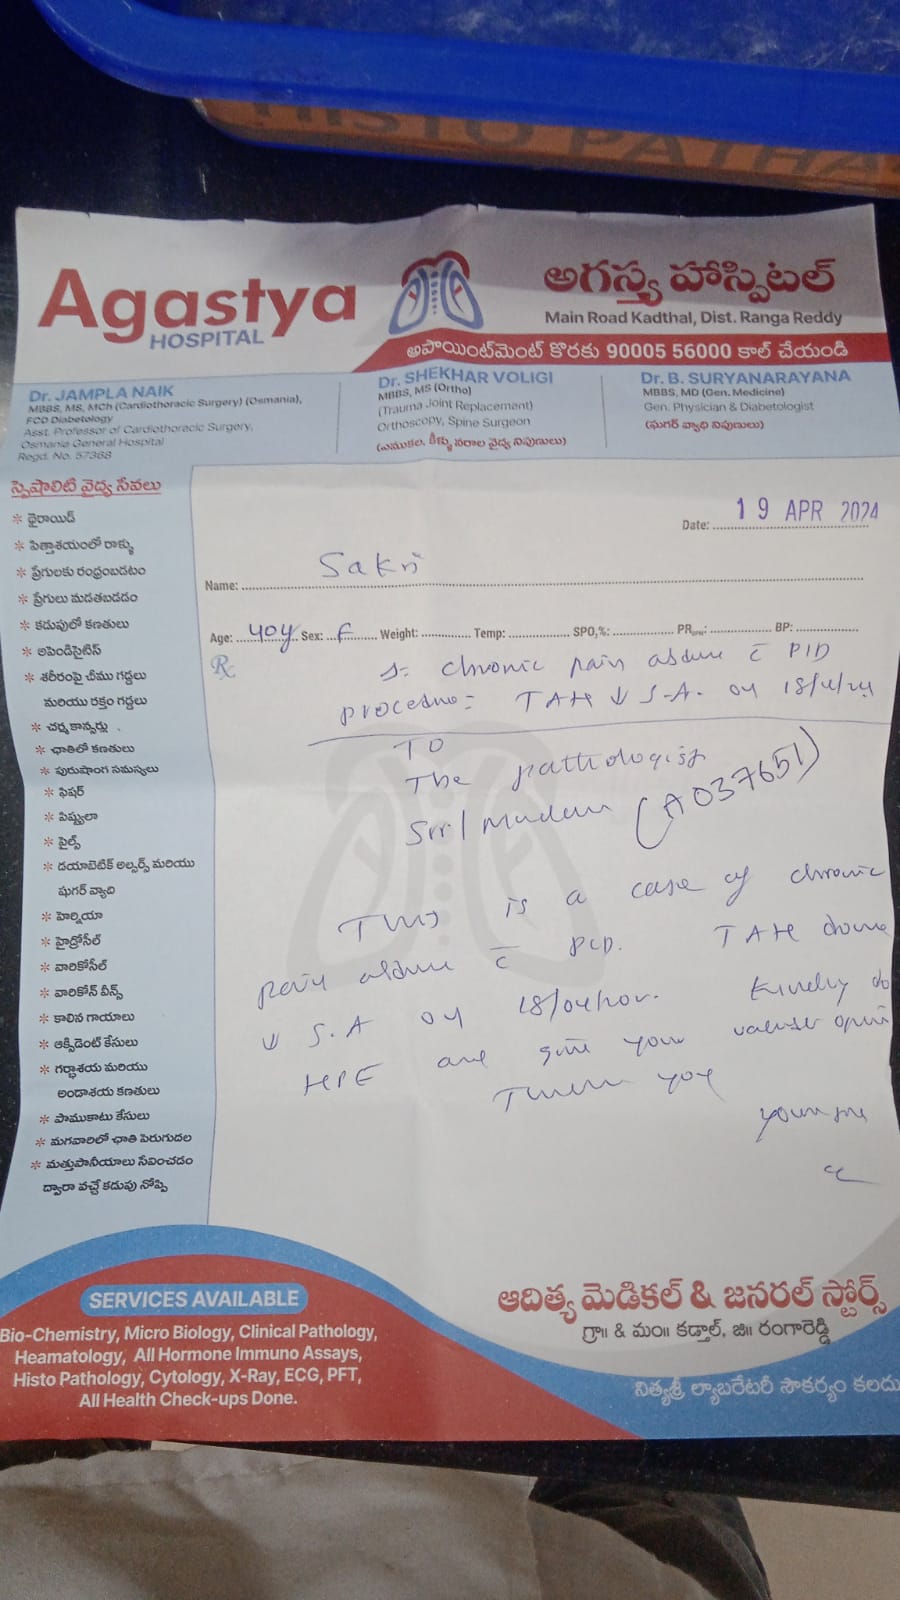 HISTO PATHA
Agastya
HOSPITAL
అగస్త్య హాస్పిటల్
Main Road Kadthal, Dist. Ranga Reddy
అపాయింట్‌మెంట్ కొరకు 90005 56000 కాల్ చేయండి
Dr. JAMPLA NAIK
MBBS, MS, MCh (Cardiothoracic Surgery) (Osmania),
FCD Diabetology
Asst. Professor of Cardiothoracic Surgery,
Osmania General Hospital
Regd. No. 57368
Dr. SHEKHAR VOLIGI
MBBS, MS (Ortho)
(Trauma Joint Replacement)
Orthoscopy, Spine Surgeon
(ఎముకల, కీళ్ళు నరాల వైద్య నిపుణులు)
Dr. B. SURYANARAYANA
MBBS, MD (Gen. Medicine)
Gen. Physician & Diabetologist
(షుగర్ వ్యాధి నిపుణులు)
స్పెషాలిటి వైద్య సేవలు
* థైరాయిడ్
* పిత్తాశయంలో రాళ్ళు
* ప్రేగులకు రంధ్రంబడటం
* ప్రేగులు మడతబడడం
* కడుపులో కణతులు
* అపెండిసైటిస్
* శరీరంపై చీము గడ్డలు
మరియు రక్తం గడ్డలు
* చర్మ కాన్సర్లు
* ఛాతిలో కణతులు
* పురుషాంగ సమస్యలు
* ఫిషర్
* పిష్టులా
* పైల్స్
* డయాబెటిక్ అల్సర్స్ మరియు
షుగర్ వ్యాది
* హెర్నియా
* హైడ్రోసీల్
* వారికోసీల్
* వారికోస్ వీన్స్
* కాలిన గాయాలు
* ఆక్సిడెంట్ కేసులు
* గర్భాశయ మరియు
అండాశయ కణతులు
* పాముకాటు కేసులు
* మగవారిలో ఛాతి పెరుగుదల
* మత్తుపానీయాలు సేవించడం
ద్వారా వచ్చే కడుపు నోప్పి
Date: 19 APR 2024
Name: Sakri
Age: 40y Sex: F Weight: Temp: SPO2%: PR: BP:
Rx
chronic pain abdme c̄ PID
TAH ↓ S.A. on 18/4/24
TO
The pathologist
Sir/Madam (A037651)
This is a case of chronic
pain abdme c̄ PID. TAH done
↓ S.A on Kindly do
HPE and give your opini
Thank you
SERVICES AVAILABLE
Bio-Chemistry, Micro Biology, Clinical Pathology,
Heamatology, All Hormone Immuno Assays,
Histo Pathology, Cytology, X-Ray, ECG, PFT,
All Health Check-ups Done.
ఆదిత్య మెడికల్ & జనరల్ స్టోర్స్
గ్రా॥ & మం॥ కడ్తాల్, జి॥ రంగారెడ్డి
నిత్యశ్రీ ల్యాబరేటరీ సౌకర్యం కలదు